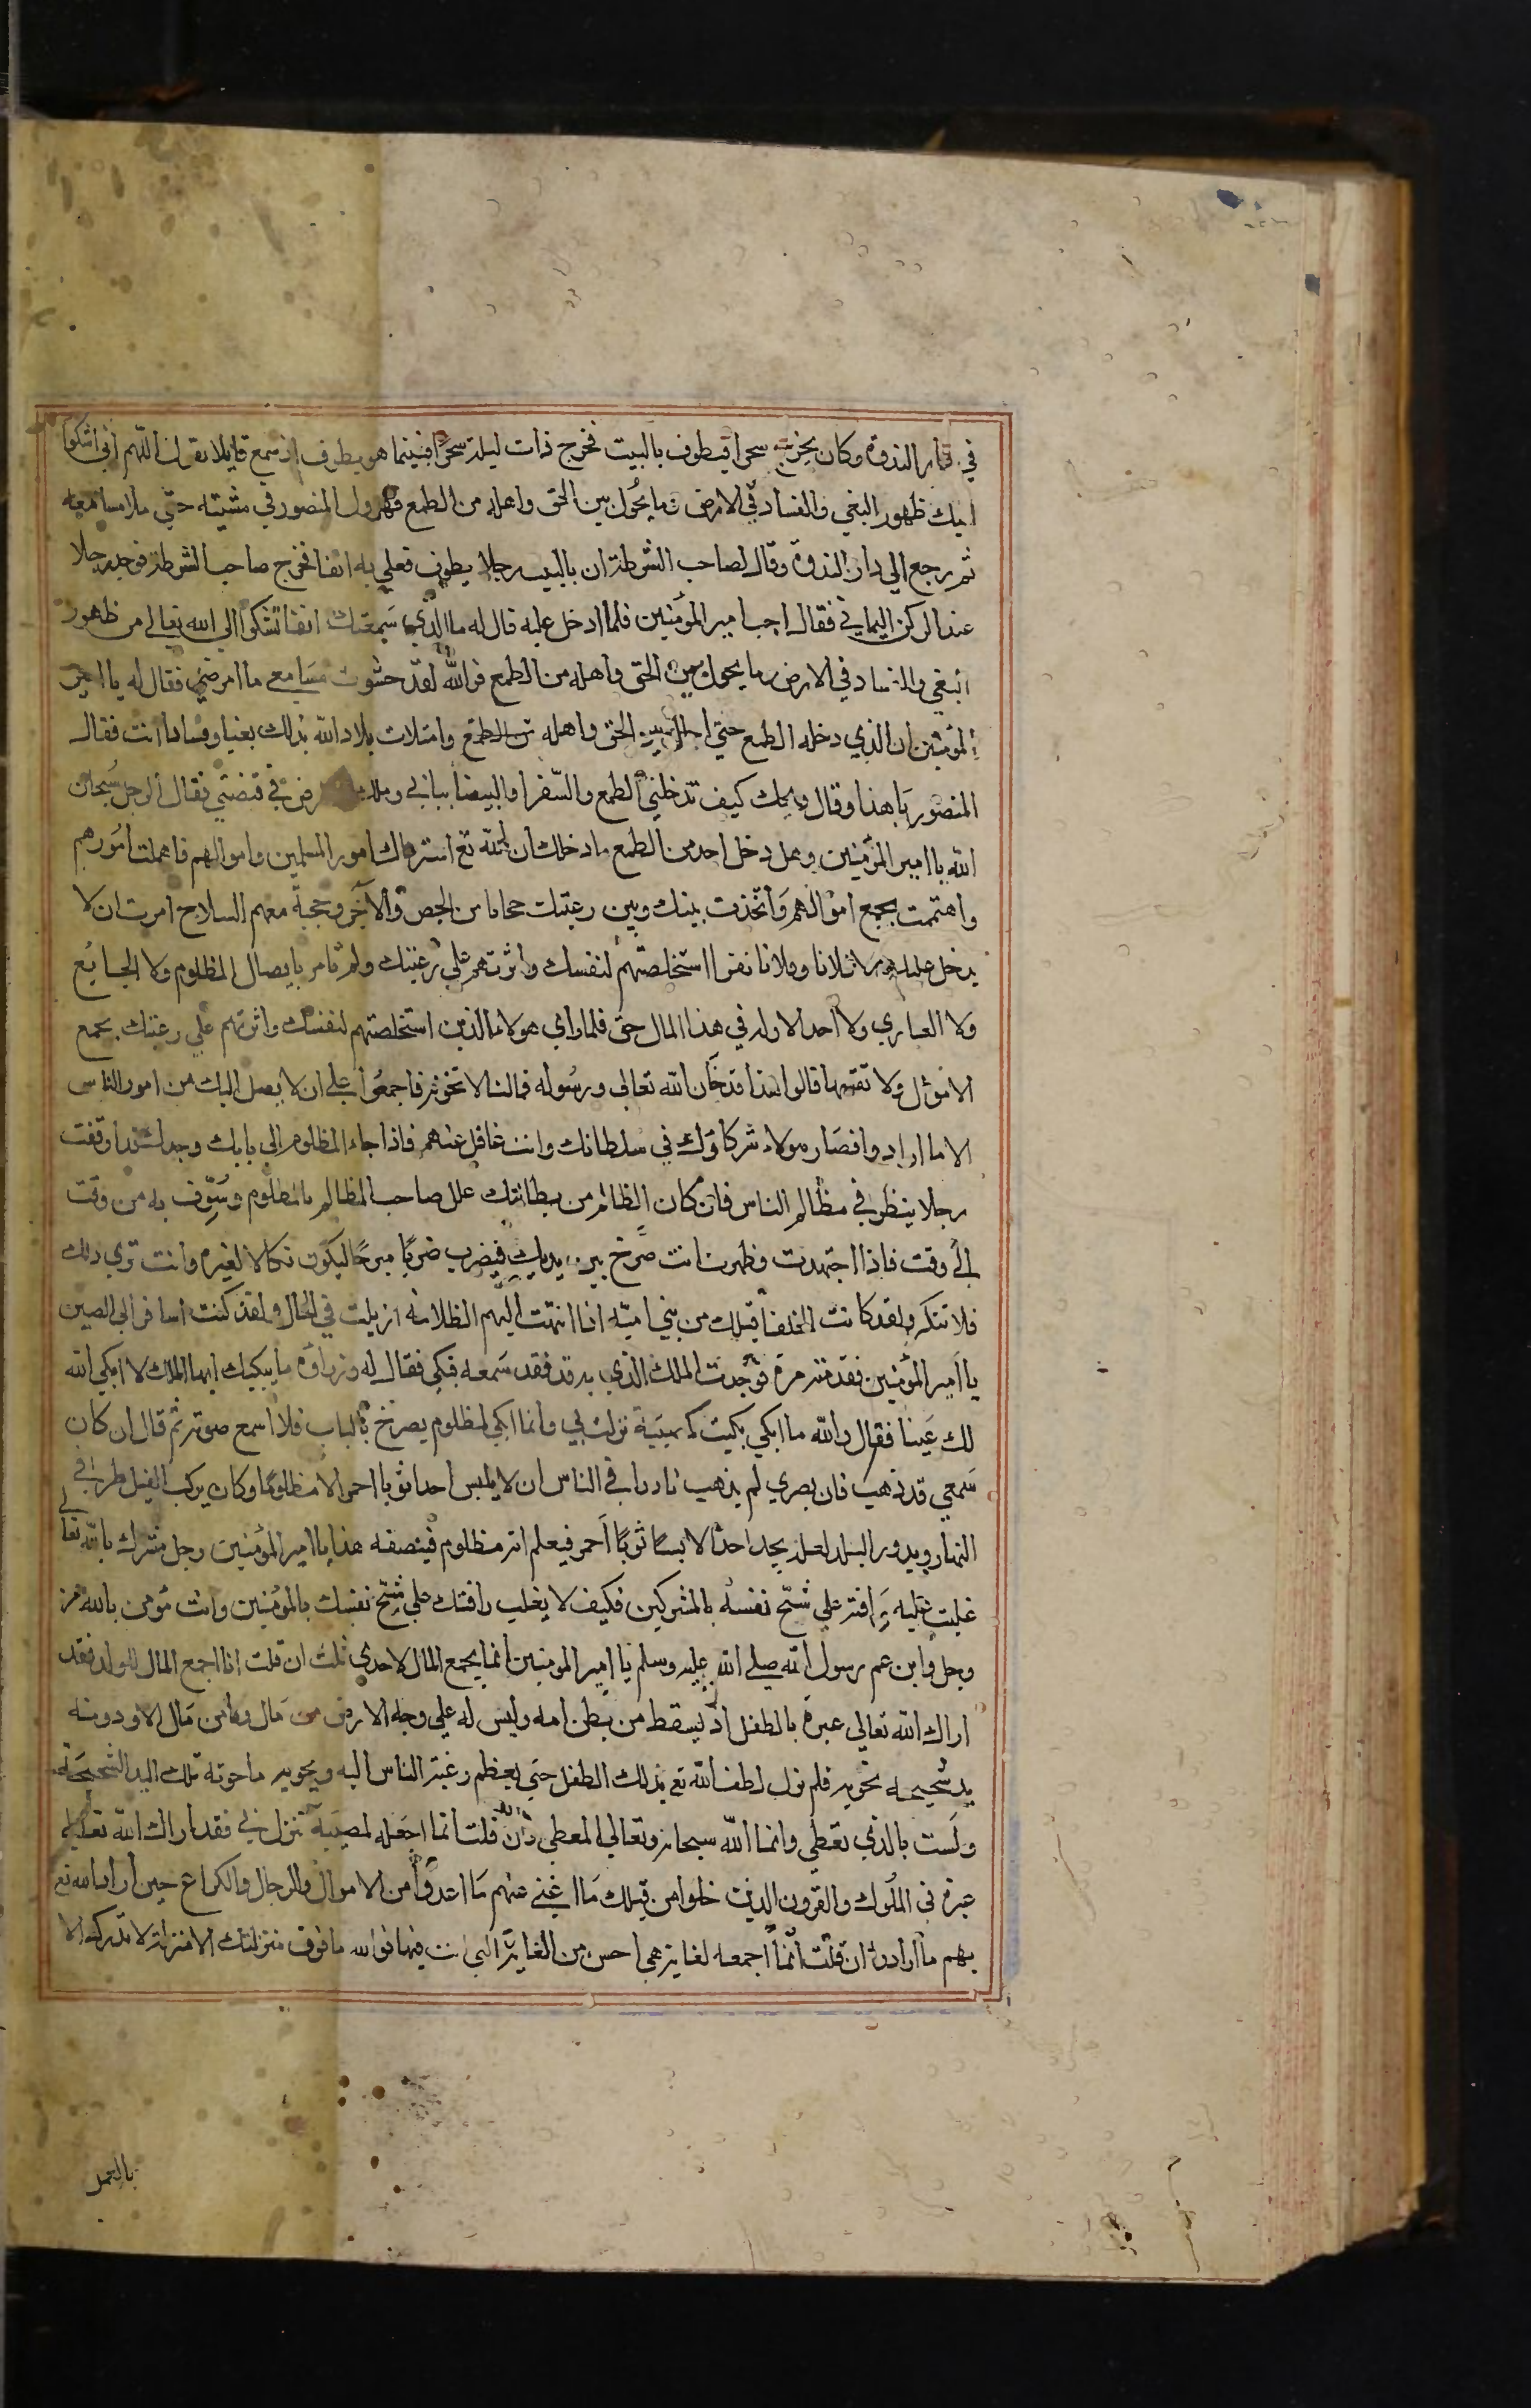 في دار الندوة وكان يخرج سحرا فيطوف بالبيت فخرج ذات ليلة سحرا فبينما هو يطوف اذ سمع قايلا يقول اللهم اني اشكوا
اليك ظهور البغي والفساد في الارض وما يحول بين الحق واهله من الطمع فهرول المنصور في مشيته حتي ملا مسامعه
ثم رجع الي دار الندوة وقال لصاحب الشرطة ان بالبيت رجلا يطوف فعلي به انفا فخرج صاحب الشرطة فوجد رجلا
عند الركن اليماني فقال اجب امير المؤمنين فلما ادخل عليه قال له ما الذي سمعتك انفا تشكوا الي الله تعالي من ظهور
البغي والفساد في الارض وما يحول بين الحق واهله من الطمع فوالله لقد حشوت مسامعي ما امرضني فقال له يا امير
المؤمنين ان الذي دخله الطمع حتي بين الحق واهله من الطمع وامتلات بلاد الله بذلك بغيا وفسادا انت فقال
المنصور يا هذا وقال ويحك كيف تدخلني الطمع والصفرا والبيضا ببابي وملك الارض في قبضتي فقال الرجل سبحان
الله يا امير المؤمنين وهل دخل احد من الطمع ما دخلك ان الله تع استرعاك امور المسلمين واموالهم فاهملت امورهم
واهتممت بجمع اموالهم واتخذت بينك وبين رعيتك حجابا من الجص والآجر وحجبة معهم السلاح امرت ان لا
يدخل عليك الا فلانا وفلانا نفرا استخلصتهم لنفسك واثرتهم علي رعيتك ولم تامر بايصال المظلوم ولا الجايع
ولا العاري ولا احد الا وله في هذا المال حق فلما راي هولاء الذين استخلصتهم لنفسك واثرتهم علي رعيتك بجمع
الاموال ولا تقسمها قالوا هذا قد خان الله تعالى ورسوله فما لنا لا نخونه فاجمعوا علي ان لا يصل اليك من امور الناس
الا ما ارادوا فصار هولاء شركاؤك في سلطانك وانت غافل عنهم فاذا جاء المظلوم الي بابك وجدك قد اوقفت
رجلا ينظر في مظالم الناس فان كان الظالم من بطانتك علل صاحب المظالم بالمظلوم وسوف به من وقت
الي وقت فاذا اجتهدت وظهرت انت صرخ بين يديك فيضرب ضربا مبرحا ليكون نكالا لغيره وانت تري ذلك
فلا تنكر ولقد كانت الخلفا قبلك من بني امية اذا انتهت اليهم الظلامة ازيلت في الحال ولقد كنت اسافر الي الصين
يا امير المؤمنين فقدمته مرة فوجدت الملك الذي به قد فقد سمعه فبكي فقال له وزراؤه ما يبكيك ايها الملك لا ابكي الله
لك عينا فقال والله ما ابكي بكيت لمصيبة نزلت بي وانما ابكي لمظلوم يصرخ بالباب فلا اسمع صوته ثم قال ان كان
سمعي قد ذهب فان بصري لم يذهب نادوا في الناس ان لا يلبس احد ثوبا احمر الا مظلوما وكان يركب الفيل طرفي
النهار ويدور البلد لعله يجد احدا لابسا ثوبا احمر فيعلم انه مظلوم فينصفه هذا يا امير المؤمنين رجل مشرك بالله تعالي
غلبت عليه رافته علي شح نفسه بالمشركين فكيف لا يغلب رافتك علي شح نفسك بالمؤمنين وانت مؤمن بالله عز
وجل وابن عم رسول الله صلي الله عليه وسلم يا امير المومنين انما يجمع المال لاحدي ثلث ان قلت انا اجمع المال للولد فقد
اراك الله تعالى عبرة بالطفل اذ يسقط من بطن امه وليس له علي وجه الارض من مال وما من مال الا ودونه
يد شحيحه تحويه فلم يزل لطف الله تع بذلك الطفل حتي يعظم رغبة الناس اليه ويحويه ما حوته تلك اليد الشحيحة
ولست بالذي تعطي وانما الله سبحانه وتعالي المعطي وان قلت انما اجعله لمصيبة تنزل بي فقد اراك الله تعالي
عبرة في الملوك والقرون الذين خلوا من قبلك ما اغني عنهم ما اعدوا من الاموال والرجال والكراع حين اراد الله تع
بهم ما اراد وان قلت انما اجمعه لغاية هي احسن من الغاية التي انت فيها فوالله ما فوق منزلتك الا منزلة لا تدرك الا
بالعمل